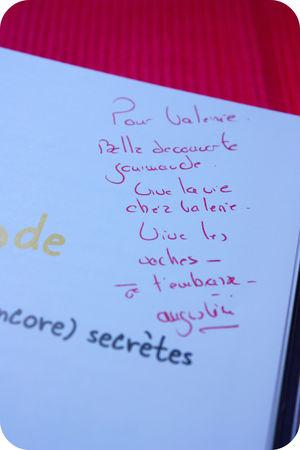 Pour Valérie.
Belle découverte
gourmande.
Vive la vie
chez Valérie.
Vive les
vaches –
Je t'embrasse –
Augustin
ode
ncore) secrètes